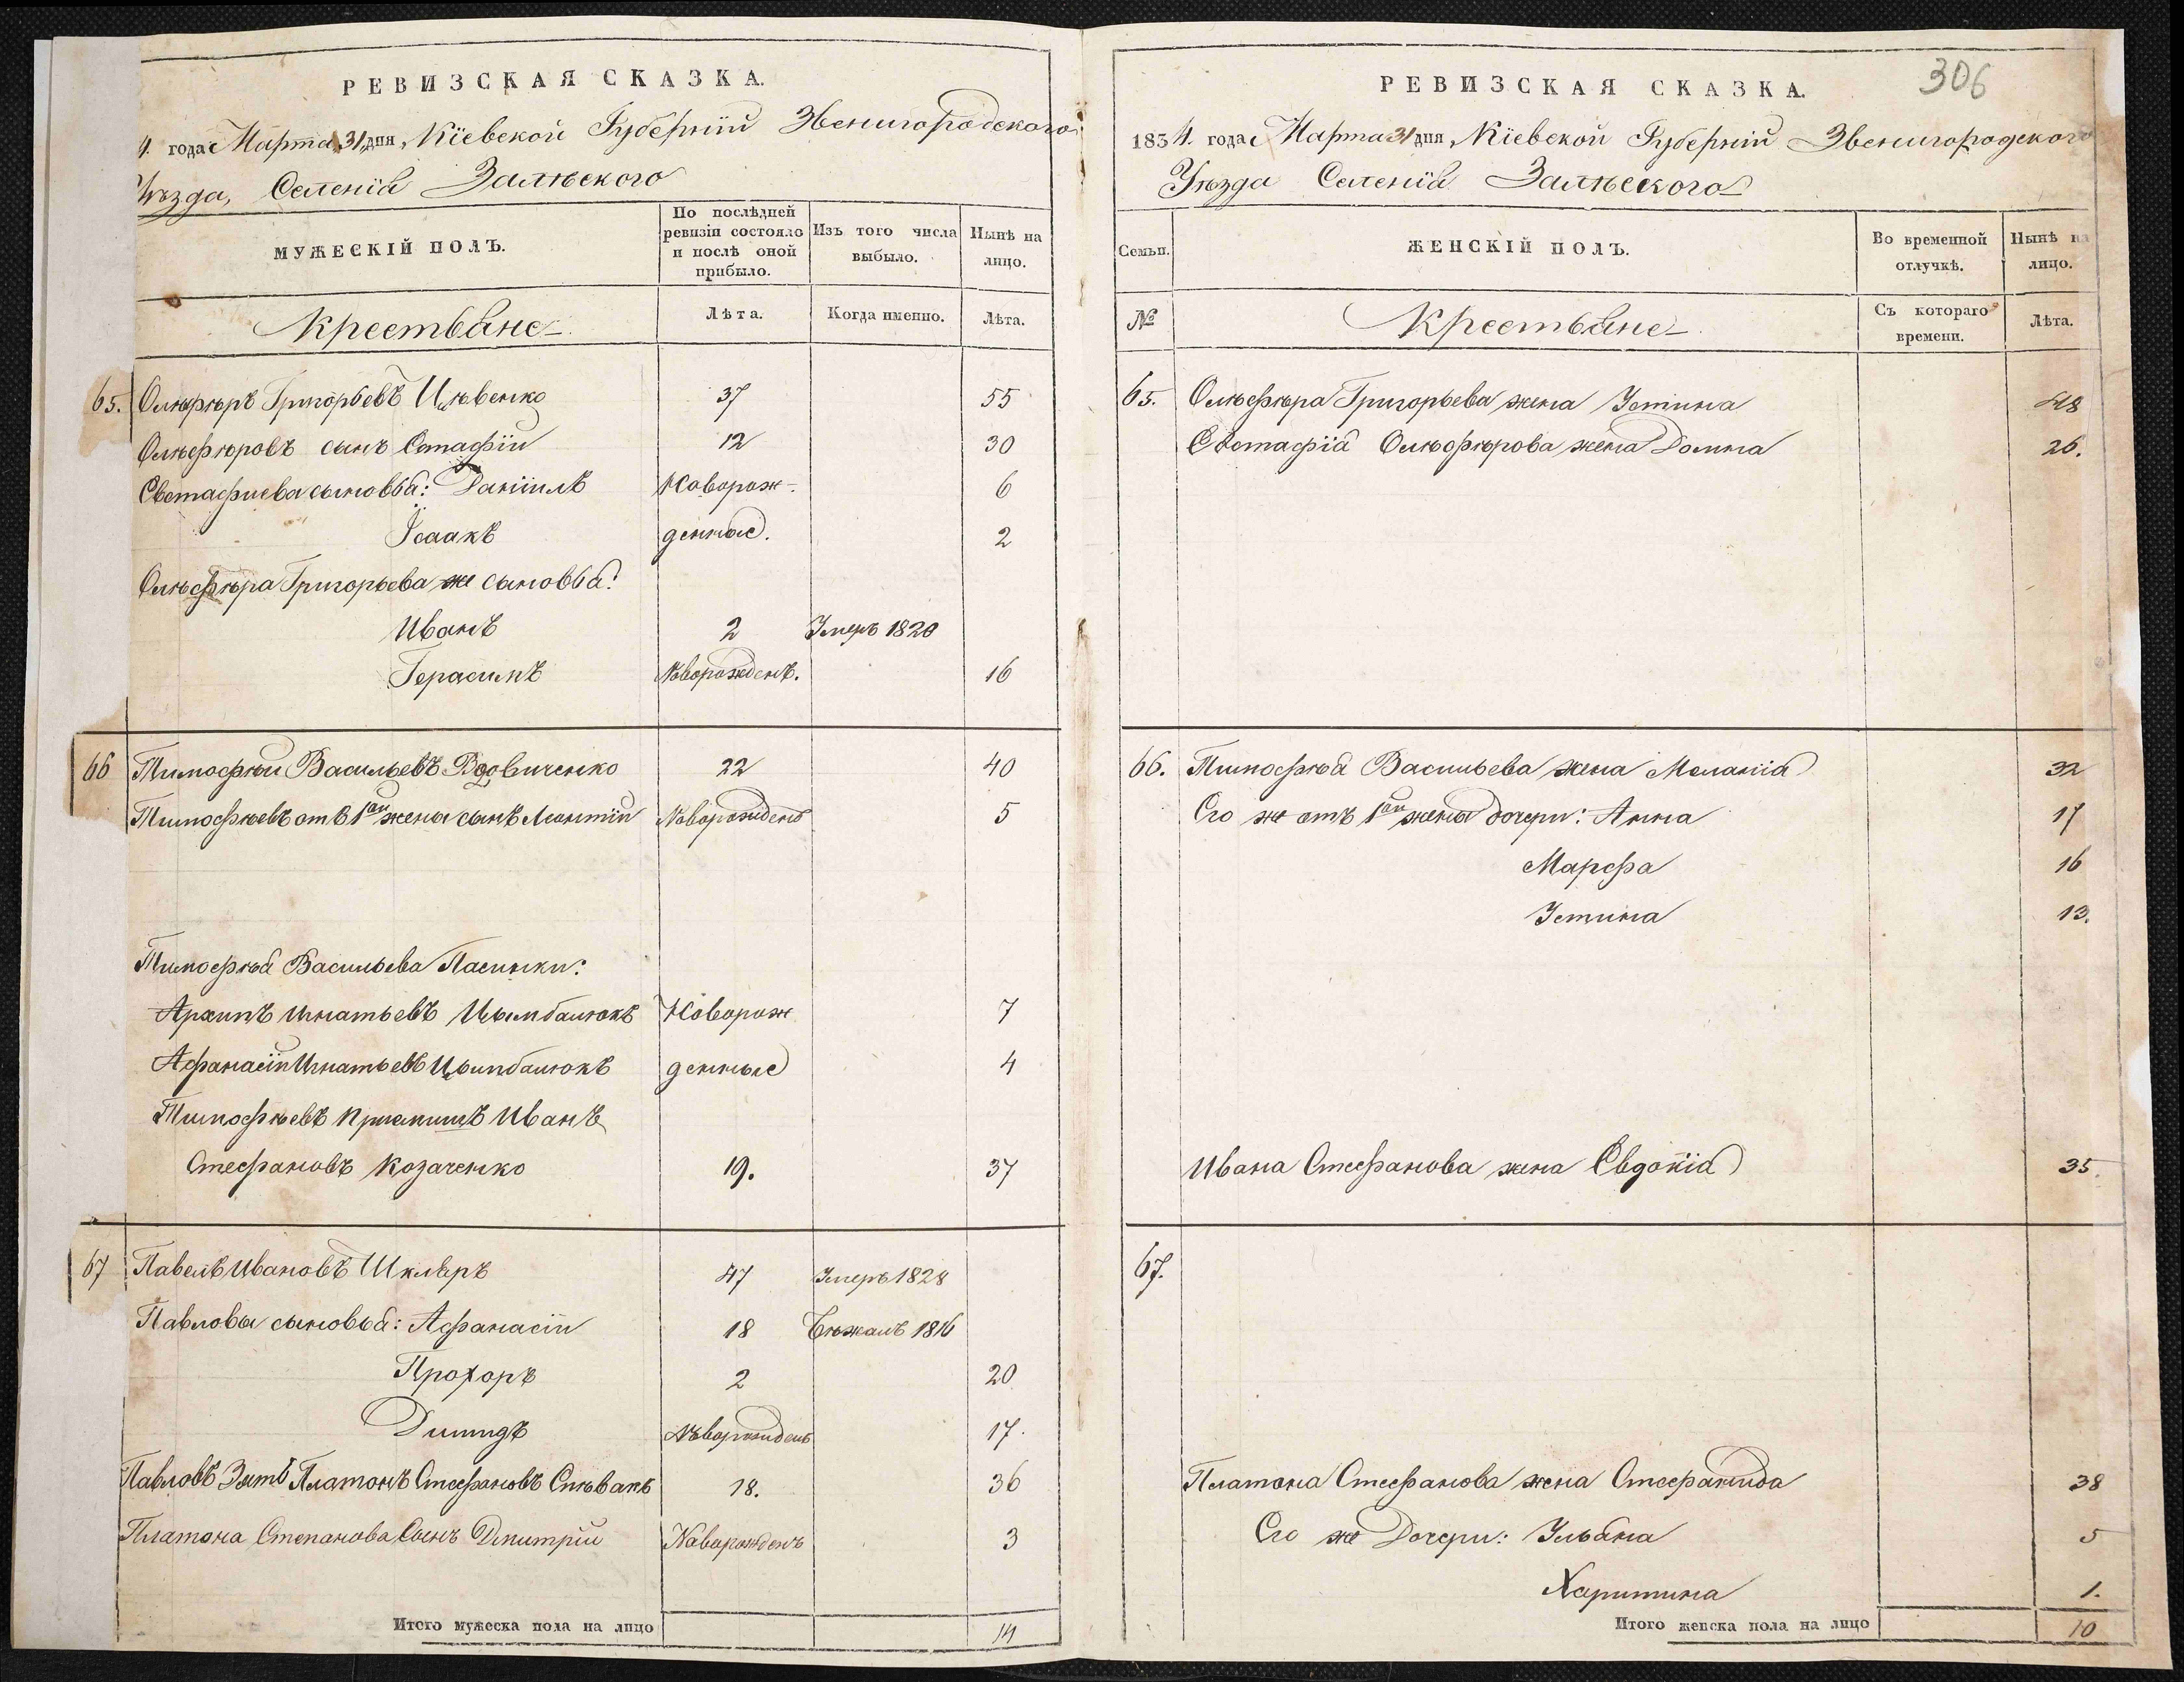 РЕВИЗСКАЯ СКАЗКА.
4. года Марта 31 дня, Кіевской Губерніи Звенигородского
Уѣзда, Селенія Залѣского
МУЖЕСКІЙ ПОЛЪ.
По послѣдней ревизіи состояло и послѣ оной прибыло.
Изъ того числа выбыло.
Нынѣ на лицо.
Крестьяне
Лѣта.
Когда именно.
Лѣта.
65. Григорьевъ 37 55
сынъ 12 30
сыновья: Даніилъ Новорож- 6
Ісаакъ денные. 2
Григорьева же сыновья:
Иванъ 2 Умеръ 1820
Герасимъ Новорожденъ. 16
66 Тимофѣй Васильевъ Вдовиченко 22 40
Тимофѣевъ отъ 1ой жены сынъ Леонтій Новорожденъ 5
Тимофѣя Васильева Пасынки:
Архипъ Игнатьевъ Цымбалюкъ Новорож 7
Афанасій Игнатьевъ Цымбалюкъ денные 4
Тимофѣевъ Приемышъ Иванъ
Стефановъ Козаченко 19. 37
67 Павелъ Ивановъ Шкляръ 47 Умеръ 1828
Павловы сыновья: Афанасій 18 Бѣжалъ 1816
Прохоръ 2 20
Новорожденъ 17.
Павловъ Зять Платонъ Стефановъ Спѣвакъ 18. 36
Платона Степанова Сынъ Дмитрій Новорожденъ 3
Итого мужеска пола на лицо 14
306
РЕВИЗСКАЯ СКАЗКА.
1834. года Марта 31 дня, Кіевской Губерніи Звенигородского
Уѣзда Селенія Залѣского
Семьи.
ЖЕНСКІЙ ПОЛЪ.
Во временной отлучкѣ.
Нынѣ на лицо.
№
Крестьяне
Съ котораго времени.
Лѣта.
65. Григорьева жена Устина 48
жена Домна 26.
66. Тимофѣя Васильева жена Меланія 32
Его же отъ 1ой жены дочери: Анна 17
Марфа 16
Устина 13.
Ивана Стефанова жена Евдокія 35.
67.
Платона Стефанова жена Стефанида 38
Его же Дочери: Ульяна 5
Харитина 1.
Итого женска пола на лицо 10